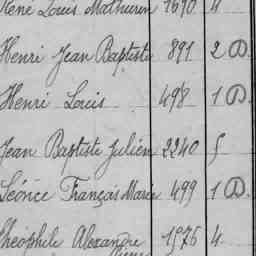 René Louis Mathurin 1670 4
Henri Jean Baptiste 891 2 D.
Henri Louis 498 1 D.
Jean Baptiste Julien 2240 5
Léonce François Marie 499 1 D.
Théophile Alexandre 1976 4